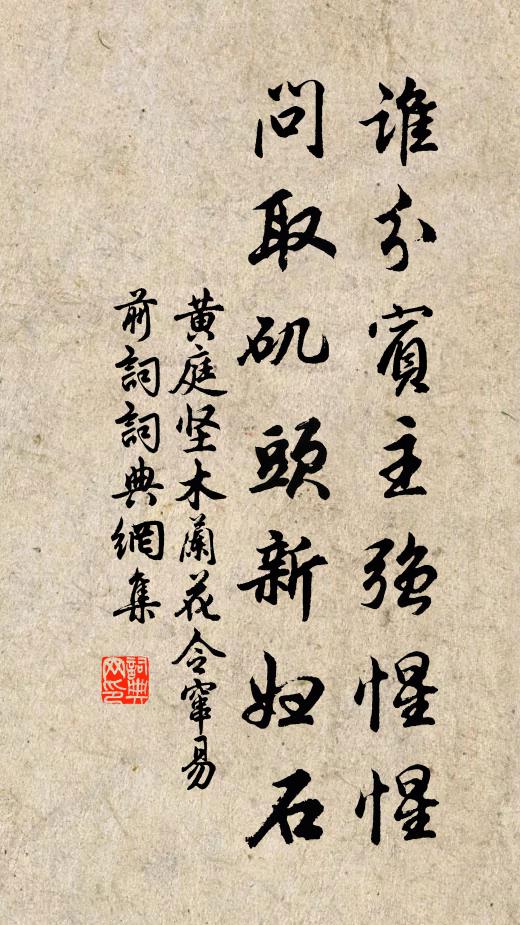 誰分賓主強惺惺
問取矶頭新婦石
黄庭坚木蘭花令窜易
前詞詞典網集
詞典網印